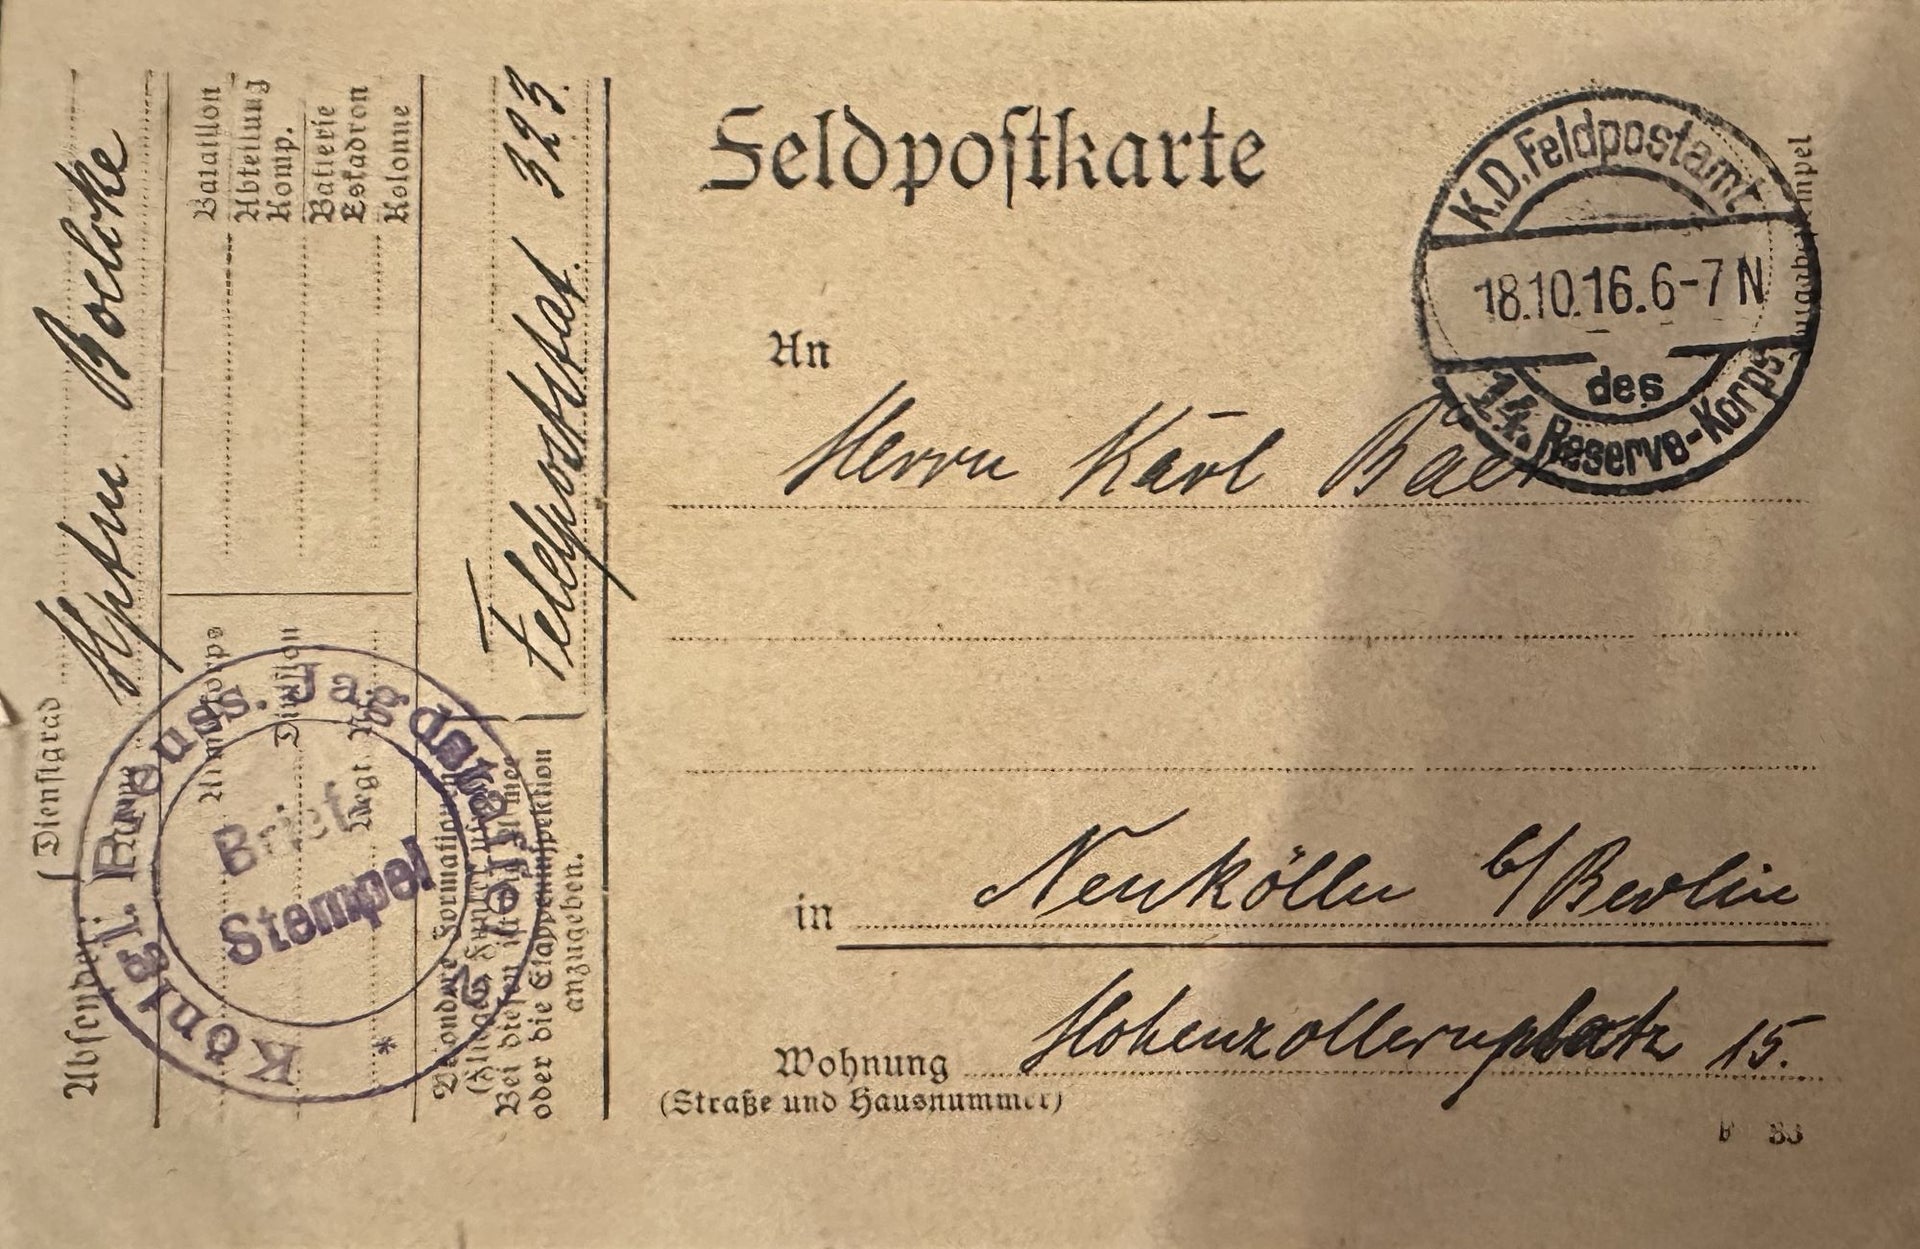 Feldpostkarte
K.D. Feldpostamt
18.10.16. 6-7 N
des
14. Reserve-Korps
An
Herrn Karl Bär
in Neukölln b/Berlin
Wohnung Hohenzollernplatz 15.
(Straße und Hausnummer)
Absender:
Dienstgrad
Hptm. Boelcke
Armeekorps
Division
Regt. Nr.
Bataillon
Abteilung
Komp.
Batterie
Eskadron
Kolonne
Besondere Formationen
Bei diesen ist
oder die Etappeninspektion
anzugeben.
Feldpoststat. 323.
Königl. Preuss. Jagdstaffel 2
*
Brief
Stempel